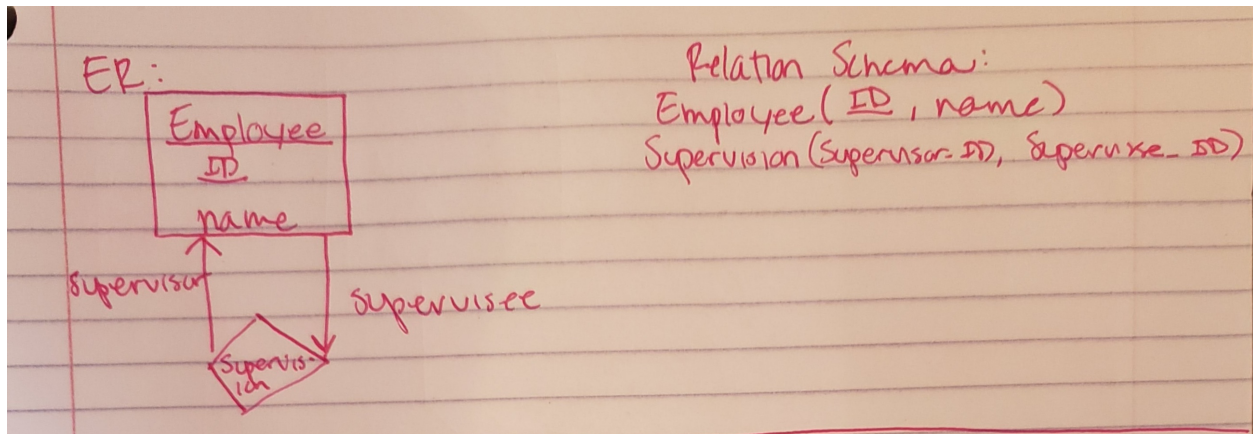 ER:
Employee
ID
name
supervisor
supervisee
Supervis-
ion
Relation Schema:
Employee(ID, name)
Supervision(Supervisor-ID, Supervisee_ID)